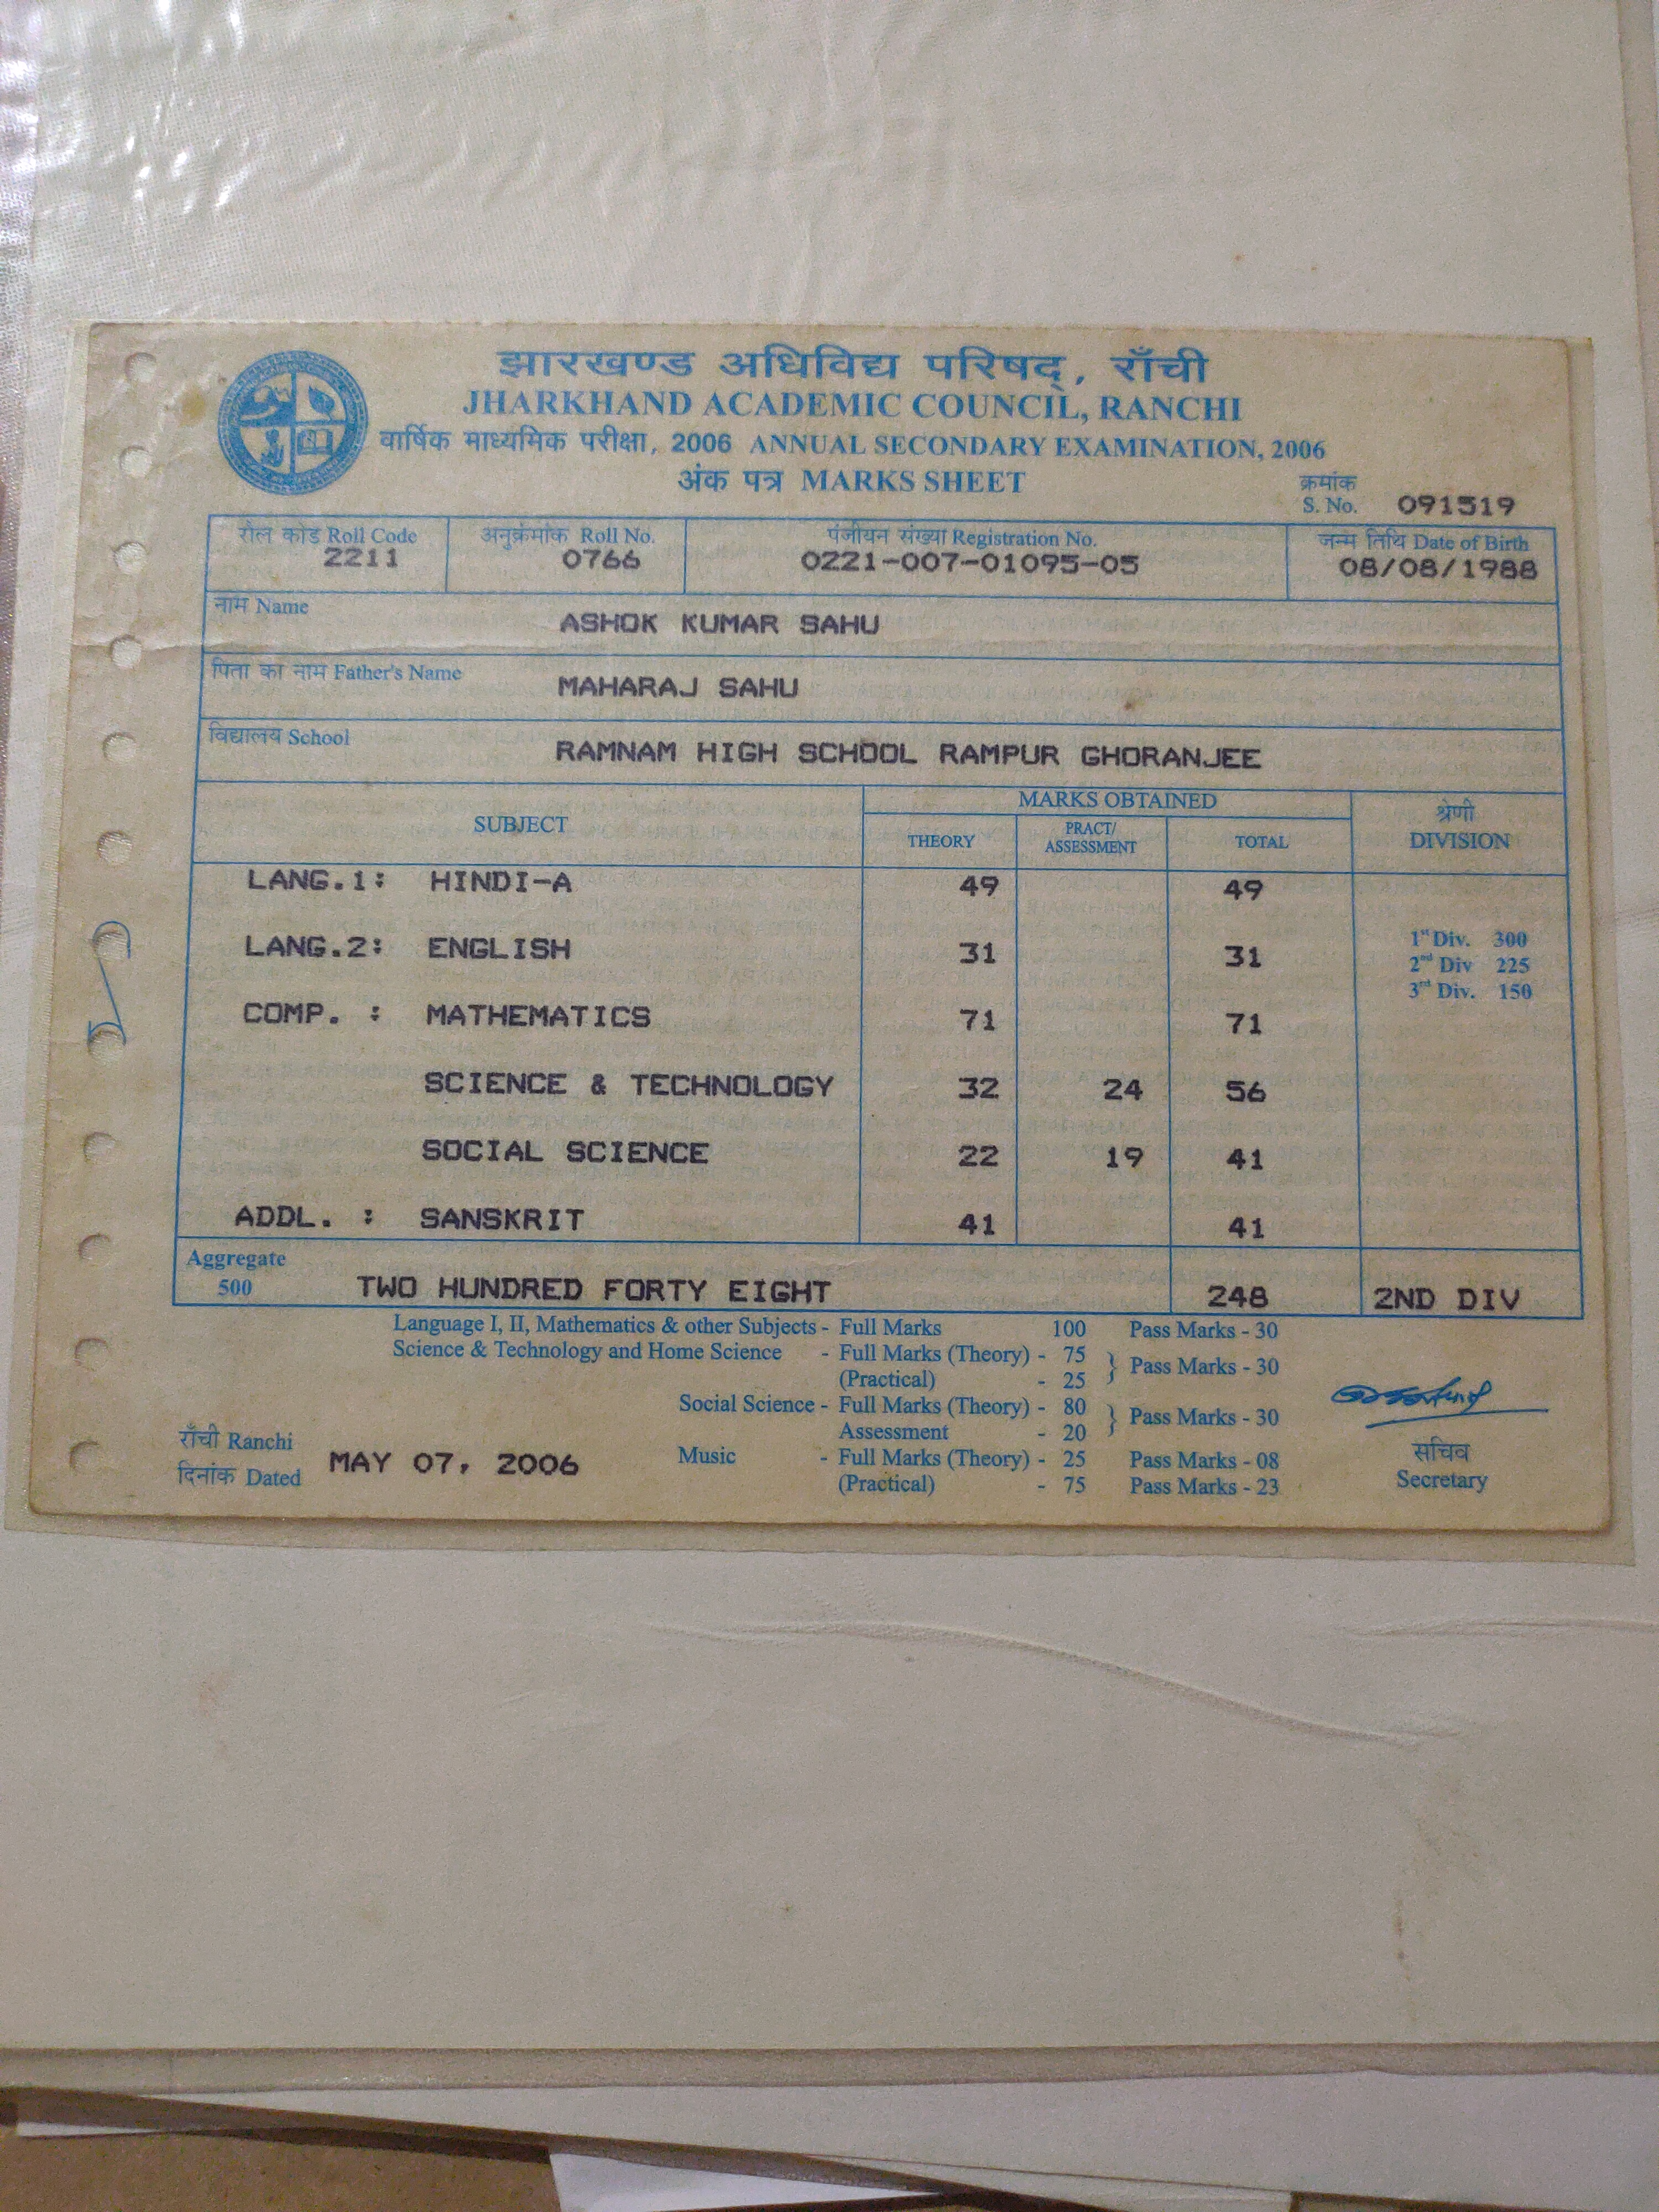 झारखण्ड अधिविद्य परिषद्, राँची
JHARKHAND ACADEMIC COUNCIL, RANCHI
वार्षिक माध्यमिक परीक्षा, 2006 ANNUAL SECONDARY EXAMINATION, 2006
अंक पत्र MARKS SHEET
क्रमांक
S. No. 091519
रौल कोड Roll Code अनुक्रमांक Roll No. पंजीयन संख्या Registration No. जन्म तिथि Date of Birth
2211 0766 0221-007-01095-05 08/08/1988
नाम Name ASHOK KUMAR SAHU
पिता का नाम Father's Name MAHARAJ SAHU
विद्यालय School RAMNAM HIGH SCHOOL RAMPUR GHORANJEE
SUBJECT MARKS OBTAINED श्रेणी DIVISION
THEORY PRACT/ ASSESSMENT TOTAL
LANG.1: HINDI-A 49 49
LANG.2: ENGLISH 31 31
1st Div. 300
2nd Div 225
3rd Div. 150
COMP. : MATHEMATICS 71 71
SCIENCE & TECHNOLOGY 32 24 56
SOCIAL SCIENCE 22 19 41
ADDL. : SANSKRIT 41 41
Aggregate
500 TWO HUNDRED FORTY EIGHT 248 2ND DIV
Language I, II, Mathematics & other Subjects - Full Marks 100 Pass Marks - 30
Science & Technology and Home Science - Full Marks (Theory) - 75 } Pass Marks - 30
(Practical) - 25
Social Science - Full Marks (Theory) - 80 } Pass Marks - 30
Assessment - 20
Music - Full Marks (Theory) - 25 Pass Marks - 08
(Practical) - 75 Pass Marks - 23
राँची Ranchi
दिनांक Dated MAY 07, 2006
सचिव
Secretary